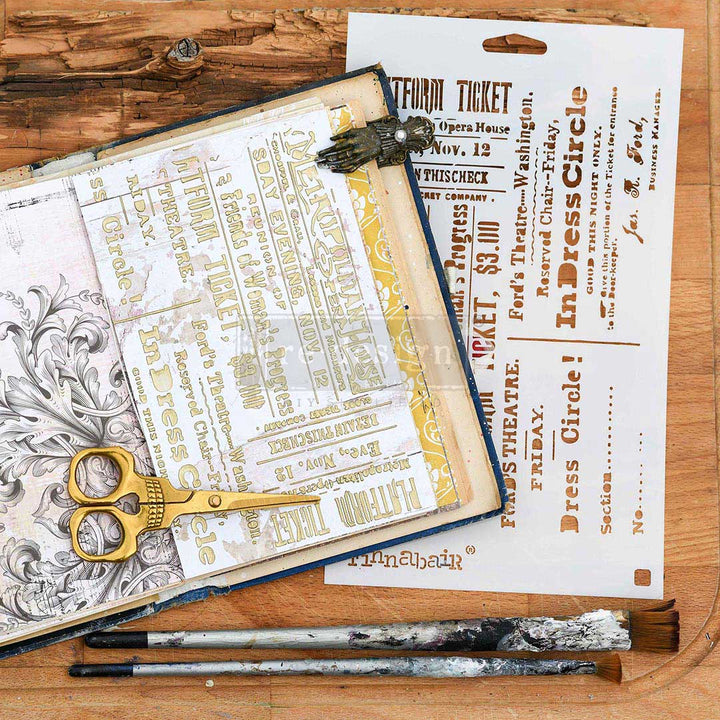 PLATFORM TICKET
Opera House
Nov. 12
THIS CHECK
TICKET COMPANY.
Progress
TICKET, $3.00
Ford's Theatre—Washington.
Reserved Chair—Friday,
In Dress Circle
GOOD THIS NIGHT ONLY.
Give this portion of the Ticket for entrance
to the Door-keeper.
Jas. R. Ford,
BUSINESS MANAGER
FORD'S THEATRE.
FRIDAY.
Dress Circle!
Section
No.
Finnabair®
SDAY EVENING, NOV. 12
REUNION OF
& Friends of Woman's Progress
TFORM TICKET $3.00
THEATRE.
RIDAY.
ss Circle!
Ford's Theatre—Wash
Reserved Chair—Friday
In Dress Circle
GOOD THIS NIGHT
RETAIN THIS CHECK
Eve, Nov. 12
Metropolitan Opera
PLATFORM TICKET
re·design